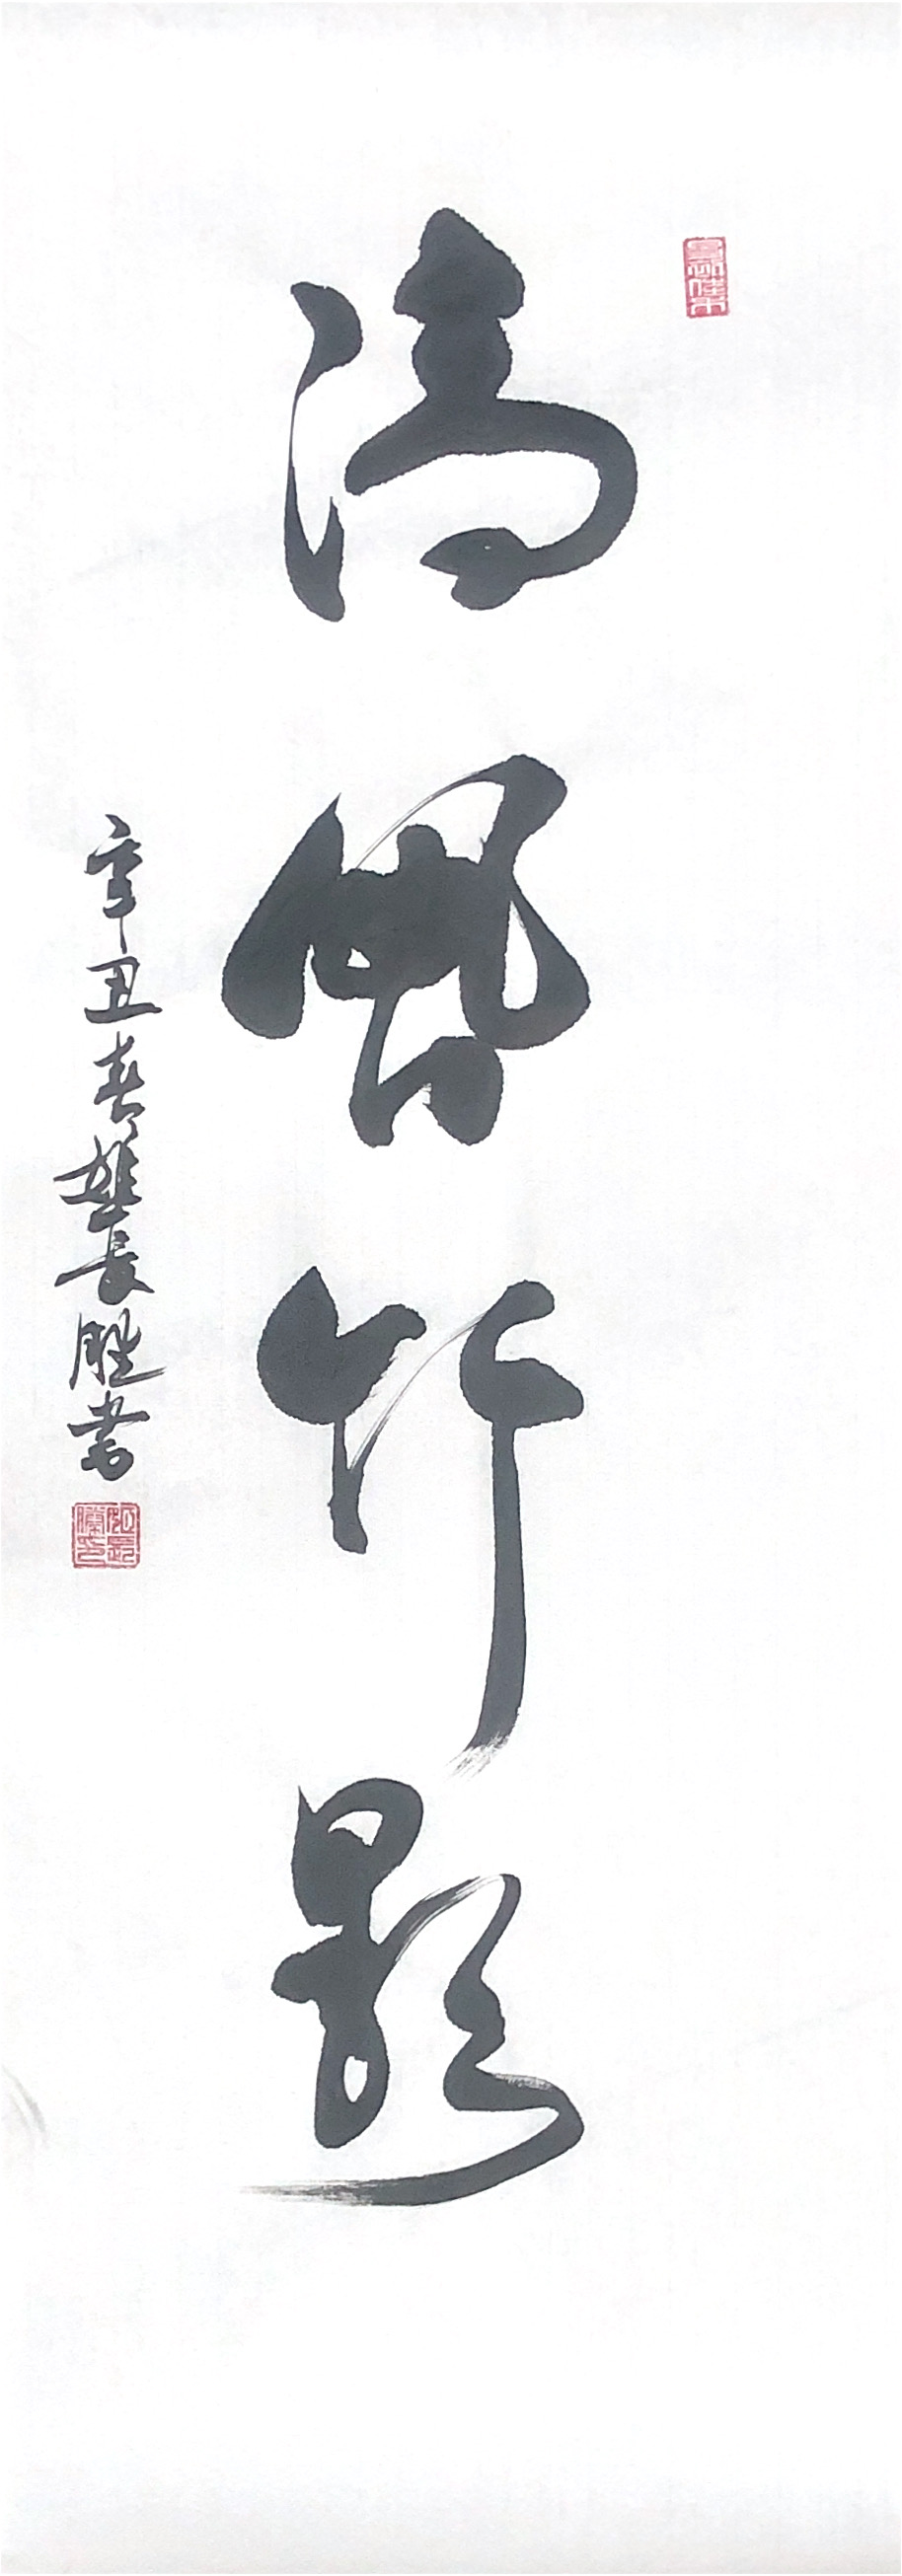 清風竹影
辛丑春雄長勝書